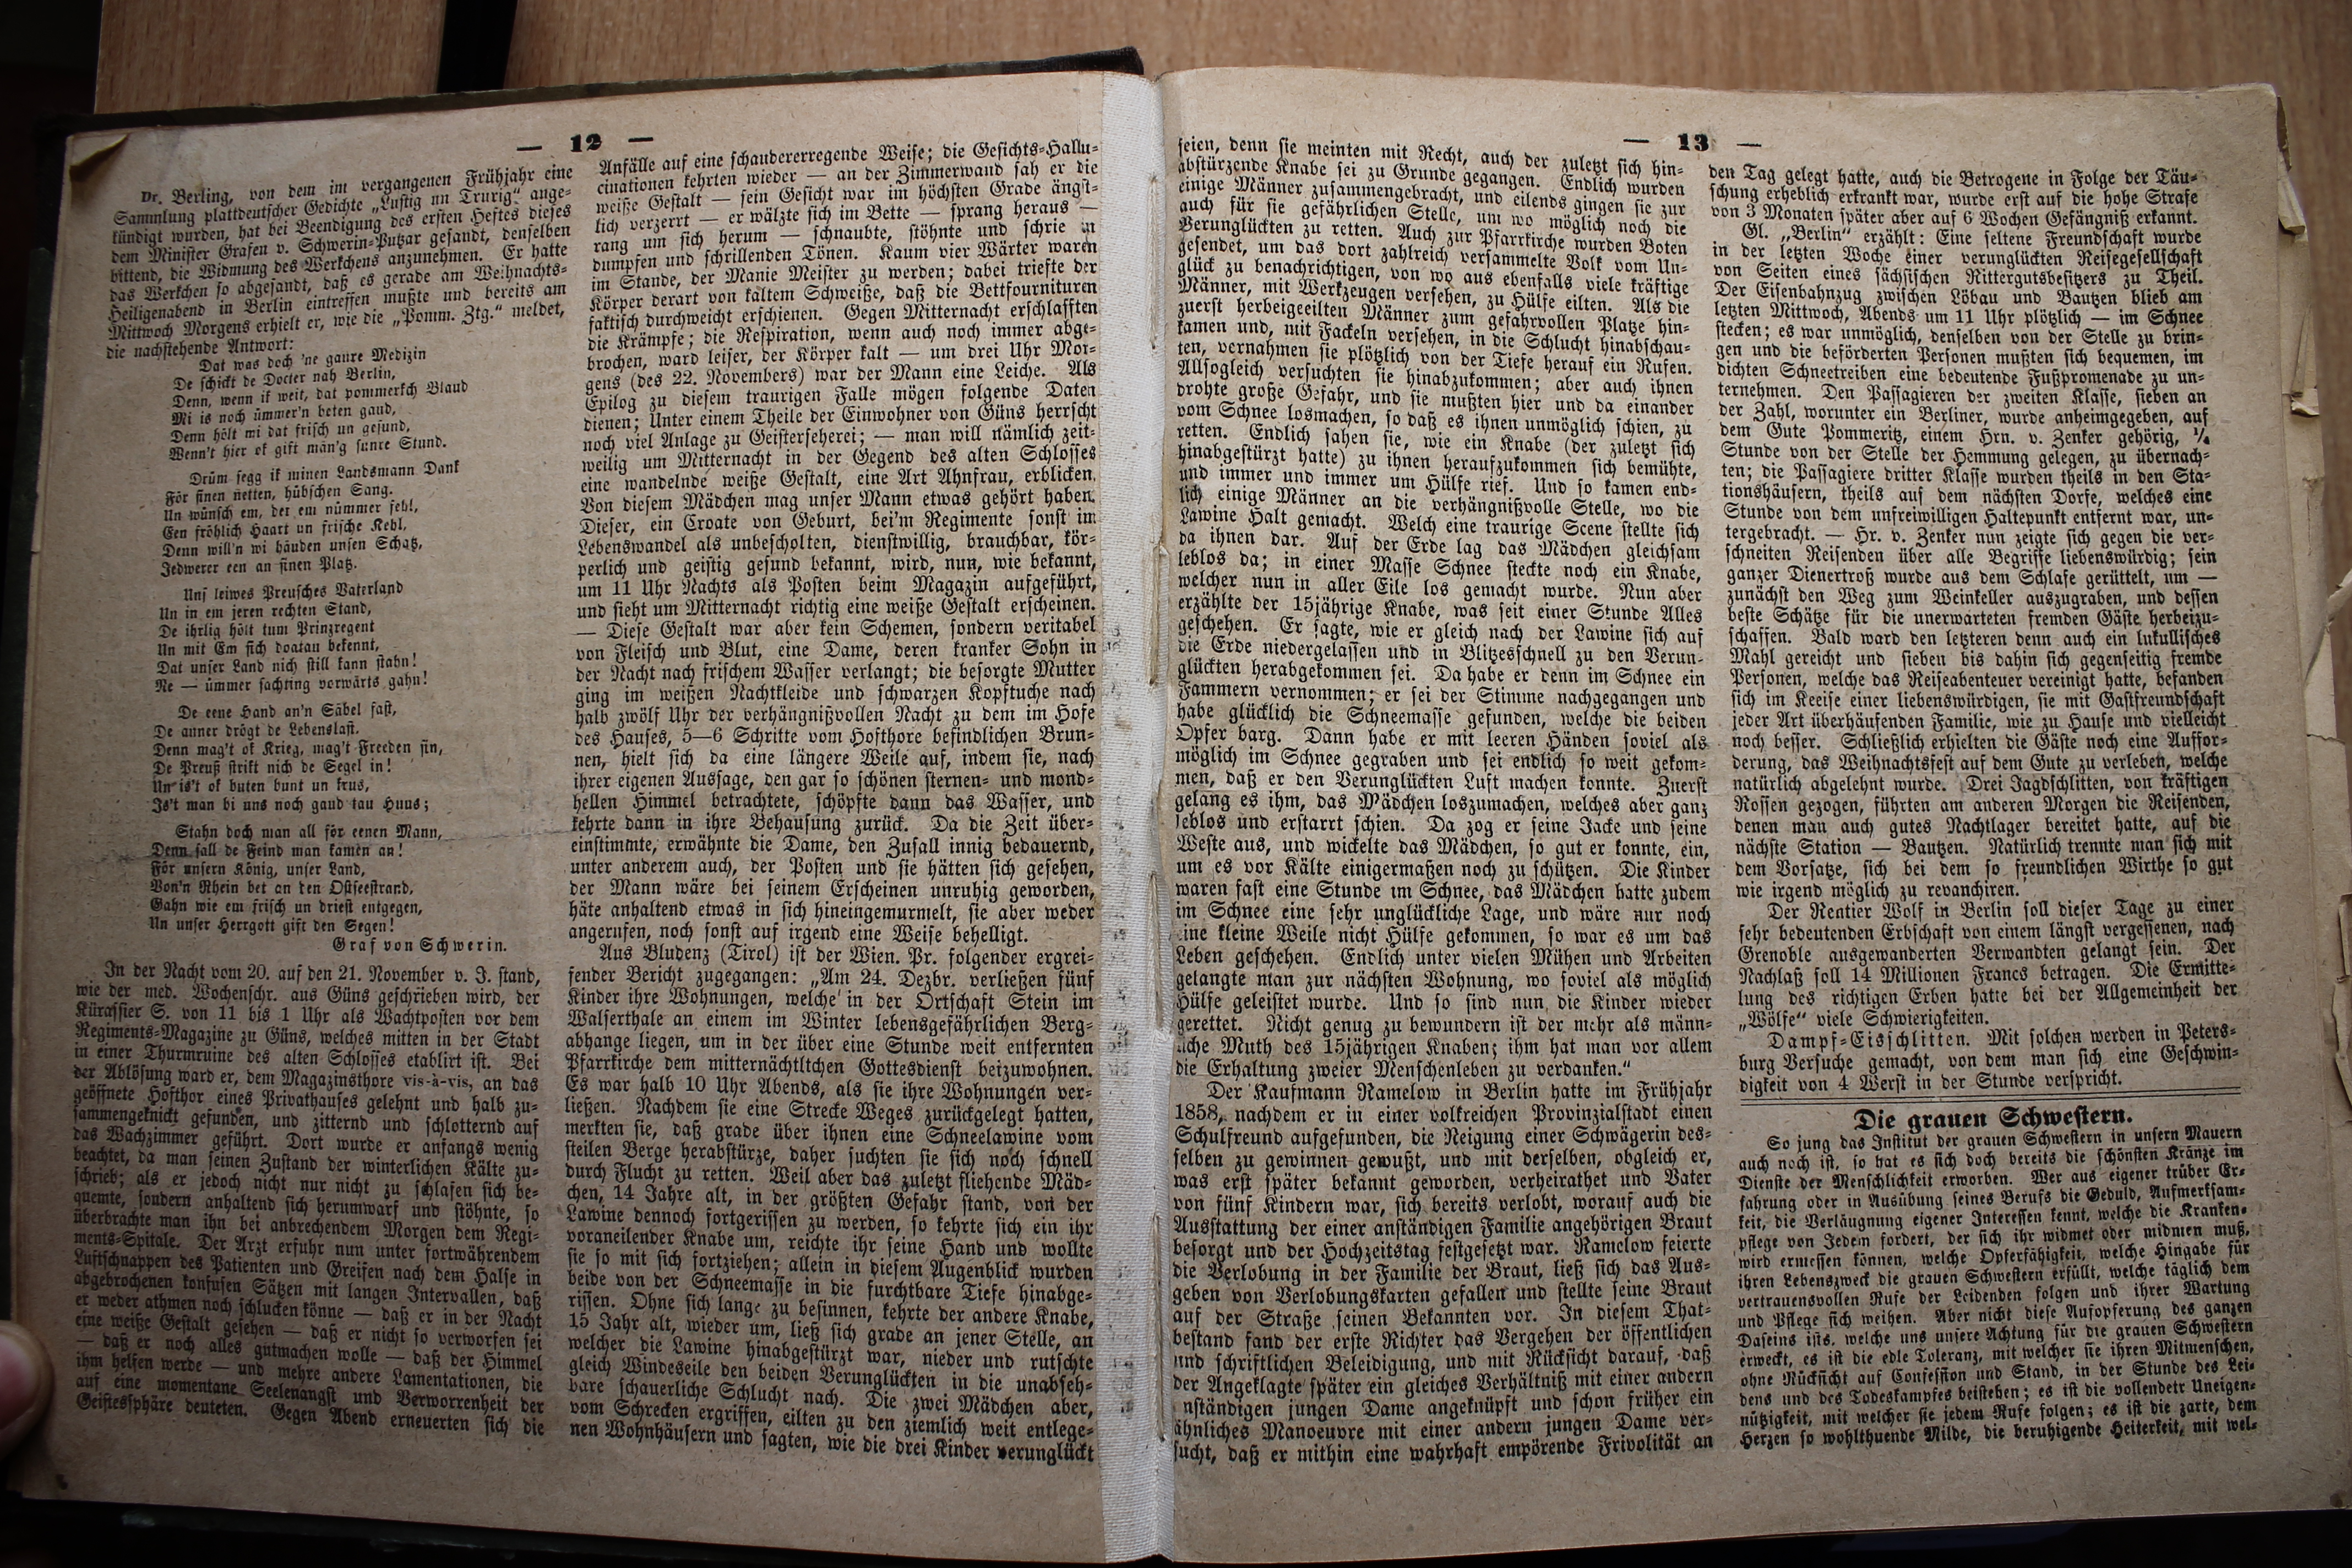 — 12 —
Dr. Berling, von dem im vergangenen Frühjahr eine
Sammlung plattdeutscher Gedichte „Lustig un Trurig“ ange-
kündigt wurden, hat bei Beendigung des ersten Heftes dieses
dem Minister Grafen v. Schwerin-Putzar gesandt, denselben
bittend, die Widmung des Werkchens anzunehmen. Er hatte
das Werkchen so abgesandt, daß es gerade am Weihnachts-
Heiligenabend in Berlin eintreffen mußte und bereits am
Mittwoch Morgens erhielt er, wie die „Pomm. Ztg.“ meldet,
die nachstehende Antwort:
Dat was doch 'ne gaure Medizin
De schickt de Docter nah Berlin,
Denn, wenn ik weit, dat pommersch Blaud
Mi is noch ümmer'n beten gaud,
Denn hölt mi dat frisch un gesund,
Wenn't hier ok gift män'g sure Stund.
Drüm segg ik minen Landsmann Dank
För sinen netten, hübschen Sang.
Un wünsch em, det em nümmer fehl,
Een fröhlich Haart un frische Kehl,
Denn will'n wi häuden unsen Schatz,
Jedwerer een an sinen Platz.
Uns leiwes Preusches Vaterland
Un in em jeren rechten Stand,
De ihrlig hölt tum Prinzregent
Un mit Em sich doatau bekennt,
Dat unser Land nich still kann stahn!
Ne — ümmer sachting vorwärts gahn!
De eene Hand an'n Säbel fast,
De anner drögt de Lebenslast.
Denn mag't of Krieg, mag't Freeden sin,
De Preuß strikt nich de Segel in!
Un is't ok buten bunt un krus,
Is't man bi uns noch gaud tau Huus;
Stahn doch man all för eenen Mann,
Denn sall de Feind man kamen an!
För unsern König, unser Land,
Von'n Rhein bet an den Ostseestrand,
Gahn wie em frisch un driest entgegen,
Un unser Herrgott gift den Segen!
Graf von Schwerin.
In der Nacht vom 20. auf den 21. November v. J. stand,
wie der med. Wochenschr. aus Güns geschrieben wird, der
Kürassier S. von 11 bis 1 Uhr als Wachtposten vor dem
Regiments-Magazine zu Güns, welches mitten in der Stadt
in einer Thurmruine des alten Schlosses etablirt ist. Bei
der Ablösung ward er, dem Magazinsthore vis-à-vis, an das
geöffnete Hofthor eines Privathauses gelehnt und halb zu-
sammengeknickt gefunden, und zitternd und schlotternd auf
das Wachzimmer geführt. Dort wurde er anfangs wenig
beachtet, da man seinen Zustand der winterlichen Kälte zu-
schrieb; als er jedoch nicht nur nicht zu schlafen sich be-
quemte, sondern anhaltend sich herumwarf und stöhnte, so
überbrachte man ihn bei anbrechendem Morgen dem Regi-
ments-Spitale. Der Arzt erfuhr nun unter fortwährendem
Luftschnappen des Patienten und Greifen nach dem Halse in
abgebrochenen konfusen Sätzen mit langen Intervallen, daß
er weder athmen noch schlucken könne — daß er in der Nacht
eine weiße Gestalt gesehen — daß er nicht so verworfen sei
— daß er noch alles gutmachen wolle — daß der Himmel
ihm helfen werde — und mehre andere Lamentationen, die
auf eine momentane Seelenangst und Verworrenheit der
Geistessphäre deuteten. Gegen Abend erneuerten sich die
Anfälle auf eine schaudererregende Weise; die Gesichts-Hallu-
cinationen kehrten wieder — an der Zimmerwand sah er die
weiße Gestalt — sein Gesicht war im höchsten Grade ängst-
lich verzerrt — er wälzte sich im Bette — sprang heraus —
rang um sich herum — schnaubte, stöhnte und schrie in
dumpfen und schrillenden Tönen. Kaum vier Wärter waren
im Stande, der Manie Meister zu werden; dabei triefte der
Körper derart von kaltem Schweiße, daß die Bettfournituren
faktisch durchweicht erschienen. Gegen Mitternacht erschlafften
die Krämpfe; die Respiration, wenn auch noch immer abge-
brochen, ward leiser, der Körper kalt — um drei Uhr Mor-
gens (des 22. Novembers) war der Mann eine Leiche. Als
Epilog zu diesem traurigen Falle mögen folgende Daten
dienen; Unter einem Theile der Einwohner von Güns herrscht
noch viel Anlage zu Geisterseherei; — man will nämlich zeit-
weilig um Mitternacht in der Gegend des alten Schlosses
eine wandelnde weiße Gestalt, eine Art Ahnfrau, erblicken.
Von diesem Mädchen mag unser Mann etwas gehört haben.
Dieser, ein Croate von Geburt, bei'm Regimente sonst im
Lebenswandel als unbescholten, dienstwillig, brauchbar, kör-
perlich und geistig gesund bekannt, wird, nun, wie bekannt,
um 11 Uhr Nachts als Posten beim Magazin aufgeführt,
und sieht um Mitternacht richtig eine weiße Gestalt erscheinen.
— Diese Gestalt war aber kein Schemen, sondern veritabel
von Fleisch und Blut, eine Dame, deren kranker Sohn in
der Nacht nach frischem Wasser verlangt; die besorgte Mutter
ging im weißen Nachtkleide und schwarzen Kopftuche nach
halb zwölf Uhr der verhängnißvollen Nacht zu dem im Hofe
des Hauses, 5—6 Schritte vom Hofthore befindlichen Brun-
nen, hielt sich da eine längere Weile auf, indem sie, nach
ihrer eigenen Aussage, den gar so schönen sternen- und mond-
hellen Himmel betrachtete, schöpfte dann das Wasser, und
kehrte dann in ihre Behausung zurück. Da die Zeit über-
einstimmte, erwähnte die Dame, den Zufall innig bedauernd,
unter anderem auch, der Posten und sie hätten sich gesehen,
der Mann wäre bei seinem Erscheinen unruhig geworden,
häte anhaltend etwas in sich hineingemurmelt, sie aber weder
angerufen, noch sonst auf irgend eine Weise behelligt.
Aus Bludenz (Tirol) ist der Wien. Pr. folgender ergrei-
fender Bericht zugegangen: „Am 24. Dezbr. verließen fünf
Kinder ihre Wohnungen, welche in der Ortschaft Stein im
Walserthale an einem im Winter lebensgefährlichen Berg-
abhange liegen, um in der über eine Stunde weit entfernten
Pfarrkirche dem mitternächtltchen Gottesdienst beizuwohnen.
Es war halb 10 Uhr Abends, als sie ihre Wohnungen ver-
ließen. Nachdem sie eine Strecke Weges zurückgelegt hatten,
merkten sie, daß grade über ihnen eine Schneelawine vom
steilen Berge herabstürze, daher suchten sie sich noch schnell
durch Flucht zu retten. Weil aber das zuletzt fliehende Mäd-
chen, 14 Jahre alt, in der größten Gefahr stand, von der
Lawine dennoch fortgerissen zu werden, so kehrte sich ein ihr
voraneilender Knabe um, reichte ihr seine Hand und wollte
sie so mit sich fortziehen; allein in diesem Augenblick wurden
beide von der Schneemasse in die furchtbare Tiefe hinabge-
rissen. Ohne sich lange zu besinnen, kehrte der andere Knabe,
15 Jahr alt, wieder um, ließ sich grade an jener Stelle, an
welcher die Lawine hinabgestürzt war, nieder und rutschte
gleich Windeseile den beiden Verunglückten in die unabseh-
bare schauerliche Schlucht nach. Die zwei Mädchen aber,
vom Schrecken ergriffen, eilten zu den ziemlich weit entlege-
nen Wohnhäusern und sagten, wie die drei Kinder verunglückt
— 13 —
seien, denn sie meinten mit Recht, auch der zuletzt sich hin-
abstürzende Knabe sei zu Grunde gegangen. Endlich wurden
einige Männer zusammengebracht, und eilends gingen sie zur
auch für sie gefährlichen Stelle, um wo möglich noch die
Verunglückten zu retten. Auch zur Pfarrkirche wurden Boten
gesendet, um das dort zahlreich versammelte Volk vom Un-
glück zu benachrichtigen, von wo aus ebenfalls viele kräftige
Männer, mit Werkzeugen versehen, zu Hülfe eilten. Als die
zuerst herbeigeeilten Männer zum gefahrvollen Platze hin-
kamen und, mit Fackeln versehen, in die Schlucht hinabschau-
ten, vernahmen sie plötzlich von der Tiefe herauf ein Rufen.
Allsogleich versuchten sie hinabzukommen; aber auch ihnen
drohte große Gefahr, und sie mußten hier und da einander
vom Schnee losmachen, so daß es ihnen unmöglich schien, zu
retten. Endlich sahen sie, wie ein Knabe (der zuletzt sich
hinabgestürzt hatte) zu ihnen heraufzukommen sich bemühte,
und immer und immer um Hülfe rief. Und so kamen end-
lich einige Männer an die verhängnißvolle Stelle, wo die
Lawine Halt gemacht. Welch eine traurige Scene stellte sich
da ihnen dar. Auf der Erde lag das Mädchen gleichsam
leblos da; in einer Masse Schnee steckte noch ein Knabe,
welcher nun in aller Eile los gemacht wurde. Nun aber
erzählte der 15jährige Knabe, was seit einer Stunde Alles
geschehen. Er sagte, wie er gleich nach der Lawine sich auf
die Erde niedergelassen und in Blitzesschnell zu den Verun-
glückten herabgekommen sei. Da habe er denn im Schnee ein
Jammern vernommen; er sei der Stimme nachgegangen und
habe glücklich die Schneemasse gefunden, welche die beiden
Opfer barg. Dann habe er mit leeren Händen soviel als
möglich im Schnee gegraben und sei endlich so weit gekom-
men, daß er den Verunglückten Luft machen konnte. Zuerst
gelang es ihm, das Mädchen loszumachen, welches aber ganz
leblos und erstarrt schien. Da zog er seine Jacke und seine
Weste aus, und wickelte das Mädchen, so gut er konnte, ein,
um es vor Kälte einigermaßen noch zu schützen. Die Kinder
waren fast eine Stunde im Schnee, das Mädchen hatte zudem
im Schnee eine sehr unglückliche Lage, und wäre nur noch
eine kleine Weile nicht Hülfe gekommen, so war es um das
Leben geschehen. Endlich unter vielen Mühen und Arbeiten
gelangte man zur nächsten Wohnung, wo soviel als möglich
Hülfe geleistet wurde. Und so sind nun die Kinder wieder
gerettet. Nicht genug zu bewundern ist der mehr als männ-
liche Muth des 15jährigen Knaben; ihm hat man vor allem
die Erhaltung zweier Menschenleben zu verdanken.“
Der Kaufmann Ramelow in Berlin hatte im Frühjahr
1858, nachdem er in einer volkreichen Provinzialstadt einen
Schulfreund aufgefunden, die Neigung einer Schwägerin des-
selben zu gewinnen gewußt, und mit derselben, obgleich er,
was erst später bekannt geworden, verheirathet und Vater
von fünf Kindern war, sich bereits verlobt, worauf auch die
Ausstattung der einer anständigen Familie angehörigen Braut
besorgt und der Hochzeitstag festgesetzt war. Ramelow feierte
die Verlobung in der Familie der Braut, ließ sich das Aus-
geben von Verlobungskarten gefallen und stellte seine Braut
auf der Straße seinen Bekannten vor. In diesem That-
bestand fand der erste Richter das Vergehen der öffentlichen
und schriftlichen Beleidigung, und mit Rücksicht darauf, daß
der Angeklagte später ein gleiches Verhältniß mit einer andern
nständigen jungen Dame angeknüpft und schon früher ein
ähnliches Manoeuvre mit einer andern jungen Dame ver-
sucht, daß er mithin eine wahrhaft empörende Frivolität an
den Tag gelegt hatte, auch die Betrogene in Folge der Täu-
schung erheblich erkrankt war, wurde erst auf die hohe Strafe
von 3 Monaten später aber auf 6 Wochen Gefängniß erkannt.
Gl. „Berlin“ erzählt: Eine seltene Freundschaft wurde
in der letzten Woche einer verunglückten Reisegesellschaft
von Seiten eines sächsischen Rittergutsbesitzers zu Theil.
Der Eisenbahnzug zwischen Löbau und Bautzen blieb am
letzten Mittwoch, Abends um 11 Uhr plötzlich — im Schnee
stecken; es war unmöglich, denselben von der Stelle zu brin-
gen und die beförderten Personen mußten sich bequemen, im
dichten Schneetreiben eine bedeutende Fußpromenade zu un-
ternehmen. Den Passagieren der zweiten Klasse, sieben an
der Zahl, worunter ein Berliner, wurde anheimgegeben, auf
dem Gute Pommeritz, einem Hrn. v. Zenker gehörig, ¼
Stunde von der Stelle der Hemmung gelegen, zu übernach-
ten; die Passagiere dritter Klasse wurden theils in den Sta-
tionshäusern, theils auf dem nächsten Dorfe, welches eine
Stunde von dem unfreiwilligen Haltepunkt entfernt war, un-
tergebracht. — Hr. v. Zenker nun zeigte sich gegen die ver-
schneiten Reisenden über alle Begriffe liebenswürdig; sein
ganzer Dienertroß wurde aus dem Schlafe gerüttelt, um —
zunächst den Weg zum Weinkeller auszugraben, und dessen
beste Schätze für die unerwarteten fremden Gäste herbeizu-
schaffen. Bald ward den letzteren denn auch ein lukullisches
Mahl gereicht und sieben bis dahin sich gegenseitig fremde
Personen, welche das Reiseabenteuer vereinigt hatte, befanden
sich im Keeise einer liebenswürdigen, sie mit Gastfreundschaft
jeder Art überhäufenden Familie, wie zu Hause und vielleicht
noch besser. Schließlich erhielten die Gäste noch eine Auffor-
derung, das Weihnachtsfest auf dem Gute zu verleben, welche
natürlich abgelehnt wurde. Drei Jagdschlitten, von kräftigen
Rossen gezogen, führten am anderen Morgen die Reisenden,
denen man auch gutes Nachtlager bereitet hatte, auf die
nächste Station — Bautzen. Natürlich trennte man sich mit
dem Vorsatze, sich bei dem so freundlichen Wirthe so gut
wie irgend möglich zu revanchiren.
Der Rentier Wolf in Berlin soll dieser Tage zu einer
sehr bedeutenden Erbschaft von einem längst vergessenen, nach
Grenoble ausgewanderten Verwandten gelangt sein. Der
Nachlaß soll 14 Millionen Francs betragen. Die Ermitte-
lung des richtigen Erben hatte bei der Allgemeinheit der
„Wölfe“ viele Schwierigkeiten.
Dampf-Eisschlitten. Mit solchen werden in Peters-
burg Versuche gemacht, von dem man sich eine Geschwin-
digkeit von 4 Werst in der Stunde verspricht.
Die grauen Schwestern.
So jung das Institut der grauen Schwestern in unsern Mauern
auch noch ist, so hat es sich doch bereits die schönsten Kränze im
Dienste der Menschlichkeit erworben. Wer aus eigener trüber Er-
fahrung oder in Ausübung seines Berufs die Geduld, Aufmerksam-
keit, die Verläugnung eigener Interessen kennt, welche die Kranken-
pflege von Jedem fordert, der sich ihr widmet oder widmen muß,
wird ermessen können, welche Opferfähigkeit, welche Hingabe für
ihren Lebenszweck die grauen Schwestern erfüllt, welche täglich dem
vertrauensvollen Rufe der Leidenden folgen und ihrer Wartung
und Pflege sich weihen. Aber nicht diese Aufopferung des ganzen
Daseins ists, welche uns unsere Achtung für die grauen Schwestern
erweckt, es ist die edle Toleranz, mit welcher sie ihren Mitmenschen,
ohne Rücksicht auf Confession und Stand, in der Stunde des Lei-
dens und des Todeskampfes beistehen; es ist die vollendete Uneigen-
nützigkeit, mit welcher sie jedem Rufe folgen; es ist die zarte, dem
Herzen so wohlthuende Milde, die beruhigende Heiterkeit, mit wel-